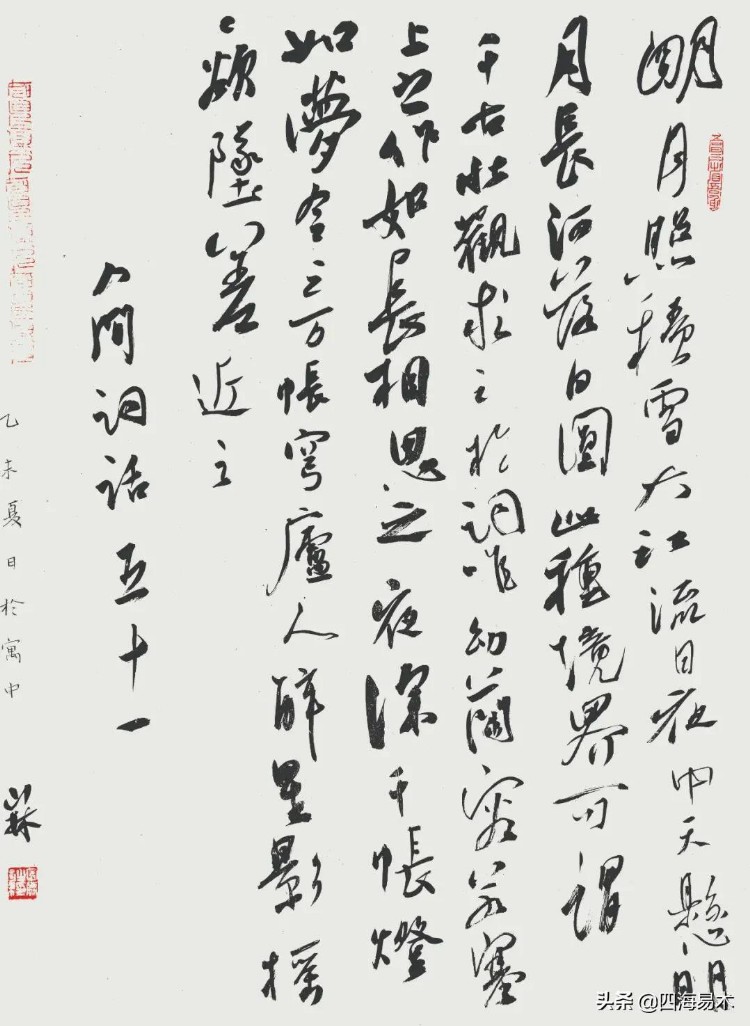 明月照積雪大江流日夜中天懸明
月長河落日圓此種境界可謂
千古壯觀求之於詞唯納蘭容若塞
上之作如長相思之夜深千帳燈
如夢令之万帳穹廬人醉星影搖
〻欲墜差近之
人間詞話五十一
乙未夏日於寓中
头条 @四海易木